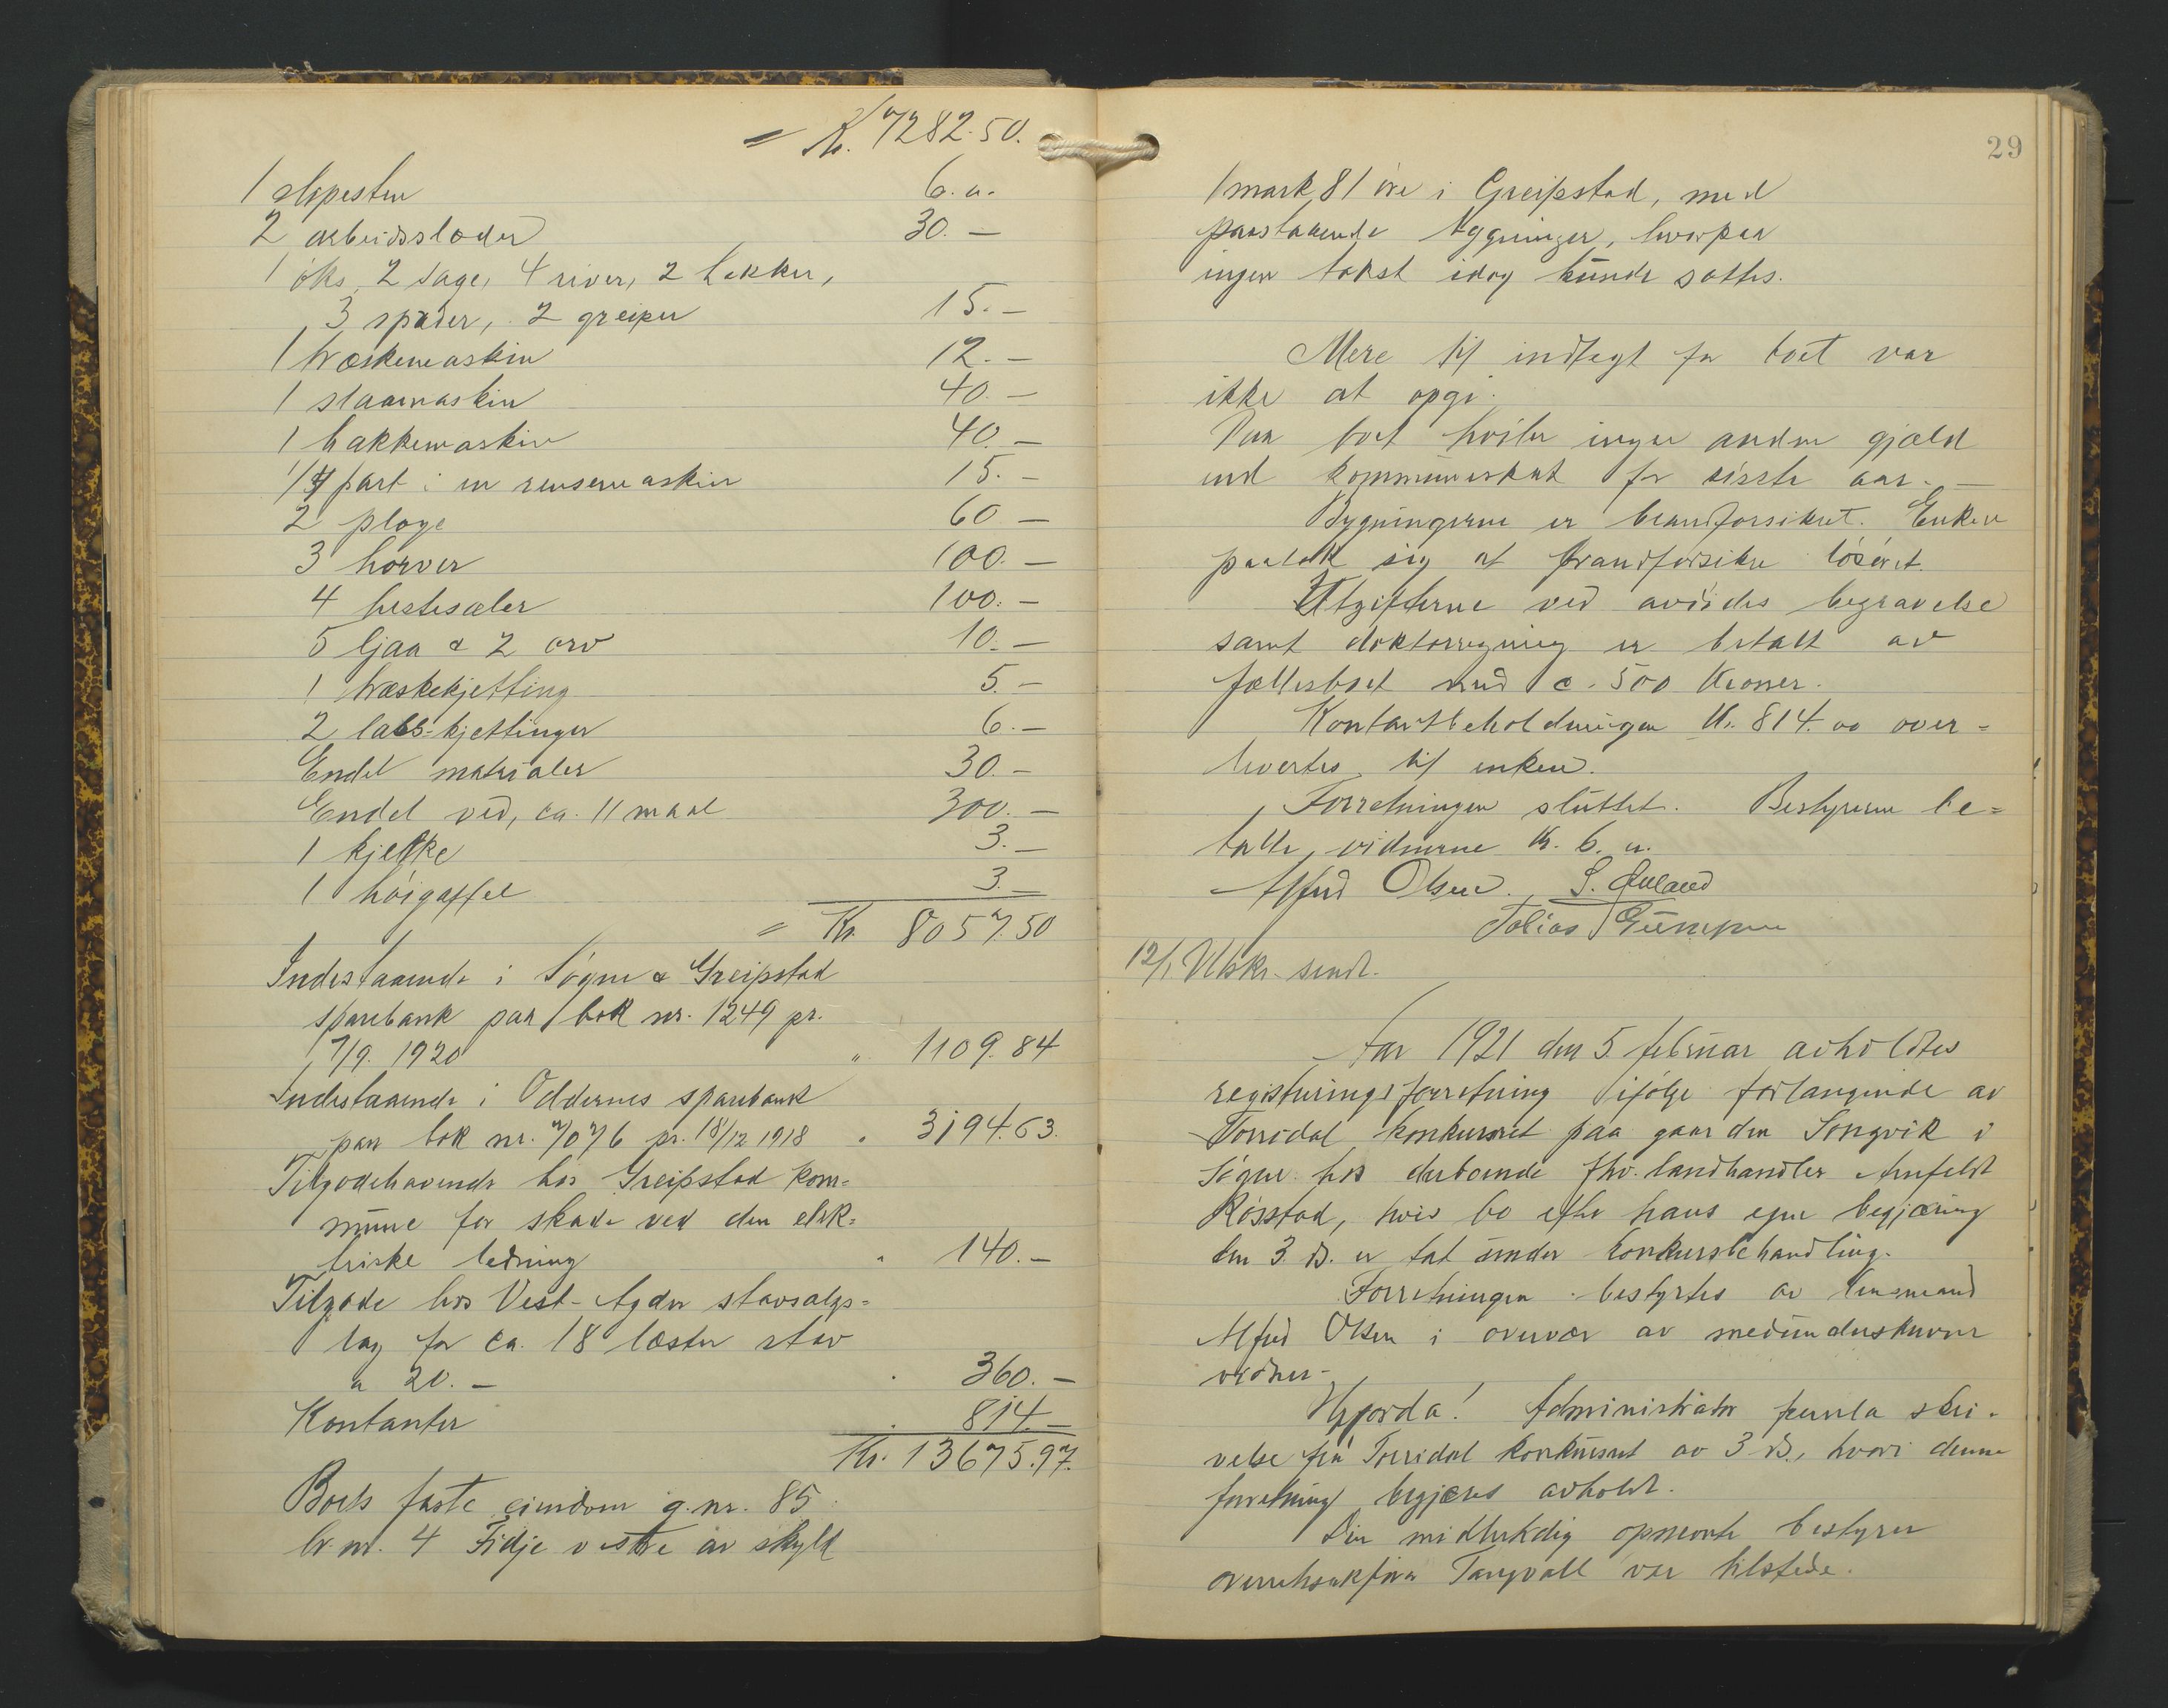 = Kr. 7282.50.
1 slipesten 6.00
2 arbeidsslæder 30.–
1 öks, 2 sage, 4 river, 2 hakker,
3 spader, 2 greiper 15.–
1 træskemaskin 12.–
1 slaamaskin 40.–
1 hakkemaskin 40.–
1/4 part i en rensemaskin 15.–
2 ploge 60 –
3 horver 100.–
4 hestesæler 100.–
5 ljaa & 2 orv 10.–
1 træskekjetting 5.–
2 lass-kjettinger 6.–
Endel materialer 30.–
Endel ved, ca. 11 maal 300.–
1 kjelke 3.–
1 höigaffel 3.–
= Kr. 8057.50
Indestaaende i Sögne & Greipstad
sparebank paa bok nr. 1249 pr.
7/9. 1920 " 1109.84
Indestaaende i Oddernes sparebank
paa bok nr. 7076 pr. 18/12 1918 " 3194.63.
Tilgodehavende hos Greipstad kom=
mune for skade ved den elek=
triske ledning " 140.–
Tilgode hos Vest-Agder stavsalgs=
lag for ca. 18 læster stav
a 20.– " 360.–
Kontanter " 814.–
Kr. 13675.97.
Boets faste eiendom g.nr. 85
br.nr. 4 Fidje vestre av skyld
29
1 mark 81 öre i Greipstad, med
paastaaende bygninger, hvorpaa
ingen takst idag kunde sættes.
Mere til indtægt for boet var
ikke at opgi.
Paa boet hviler ingen anden gjæld
end kommuneskat for sisste aar. –
Bygningerne er brandforsikret. Enken
paatok sig at brandforsikre lösöret.
Utgifterne ved avdödes begravelse
samt doktorregning er betalt av
fællesboet med c. 500 kroner.
Kontantbeholdningen Kr. 814.00 over=
levertes til enken.
Forretningen sluttet. Bestyreren be=
talte vidnerne Kr. 6.00
Alfred Olsen. S.
Tobias
12/1 Utskr. sendt.
Aar 1921 den 5. februar avholdtes
registreringsforretning ifölge forlangende av
Torridal konkursret paa gaarden Songvik i
Sögne hos derboende fhv. landhandler Arnfeldt
Rösstad, hvis bo efter hans egen begjæring
den 3. ds. er tat under konkursbehandling.
Forretningen bestyrtes av lensmand
Alfred Olsen i overvær av medunderskrevne
vidner –
Hvorda! Administrator fremla skri-
velse fra Torridal konkursret av 3 ds., hvori denne
forretning begjæres avholdt.
Den midlertidig opnevnte bestyrer
overretssakförer Tangvall var tilstede.